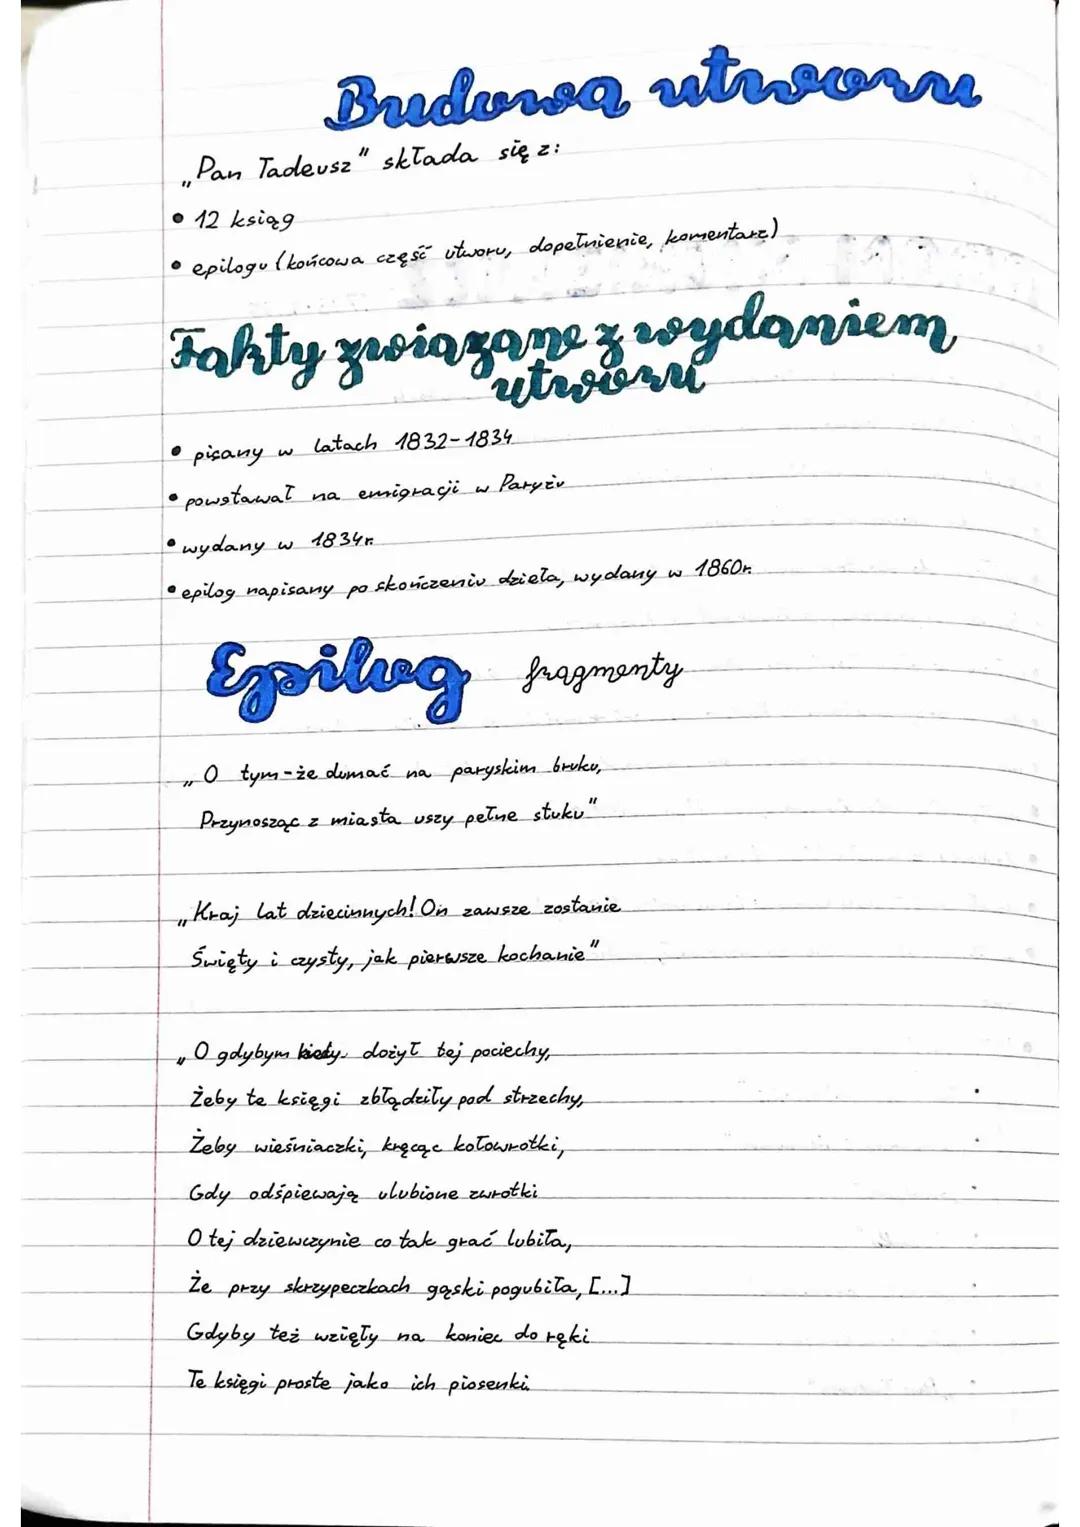 Budowa utworu
„Pan Tadeusz" składa się z:
• 12 ksiąg
• epilogu (końcowa część utworu, dopełnienie, komentarz)
Fakty związane z wydaniem
utworu
• pisany w latach 1832-1834
• powstawał na emigracji w Paryżu
• wydany w 1834r.
• epilog napisany po skończeniu dzieła, wydany w 1860r.
Epilog fragmenty
„O tym-że dumać na paryskim bruku,
Przynosząc z miasta uszy pełne stuku"
„Kraj lat dziecinnych! On zawsze zostanie
Święty i czysty, jak pierwsze kochanie"
„O gdybym kiedy dożył tej pociechy,
Żeby te księgi zbłądziły pod strzechy,
Żeby wieśniaczki, kręcąc kołowrotki,
Gdy odśpiewają ulubione zwrotki
O tej dziewczynie co tak grać lubiła,
Że przy skrzypeczkach gąski pogubiła, [...]
Gdyby też wzięły na koniec do ręki
Te księgi proste jako ich piosenki.